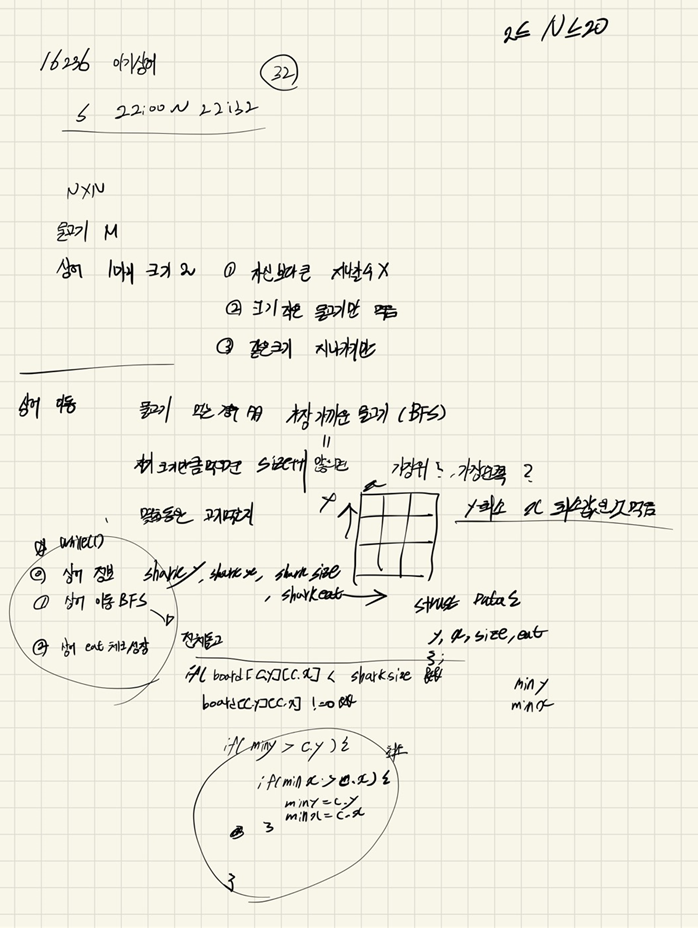 2 ≤ N ≤ 20
16236 아기상어
32
S 22:00 ~ 22:32
N×N
물고기 M
상어 1마리 크기 2 ① 자신보다 큰 지나갈수 X
② 크기 작은 물고기만 먹음
③ 같은크기 지나가기만
상어 이동 물고기 먹는 가장 가까운 물고기 (BFS)
크기만큼 먹으면 size 많으면 가장위 , 가장왼쪽 ?
y x
y 최소 x 최소값인것 먹음
몇초동안
while()
⓪ 상어 정보 shark y, shark x, shark size
, shark eat
① 상어 이동 BFS
struct Data {
② 상어 eat 체크/성장
y, x, size, eat
};
if( board[c.y][c.x] < shark size &&
board[c.y][c.x] !=0
min y
min x
if( min y > c.y ) {
if( min x > c.x ) {
min y = c.y
min x = c.x
}
}